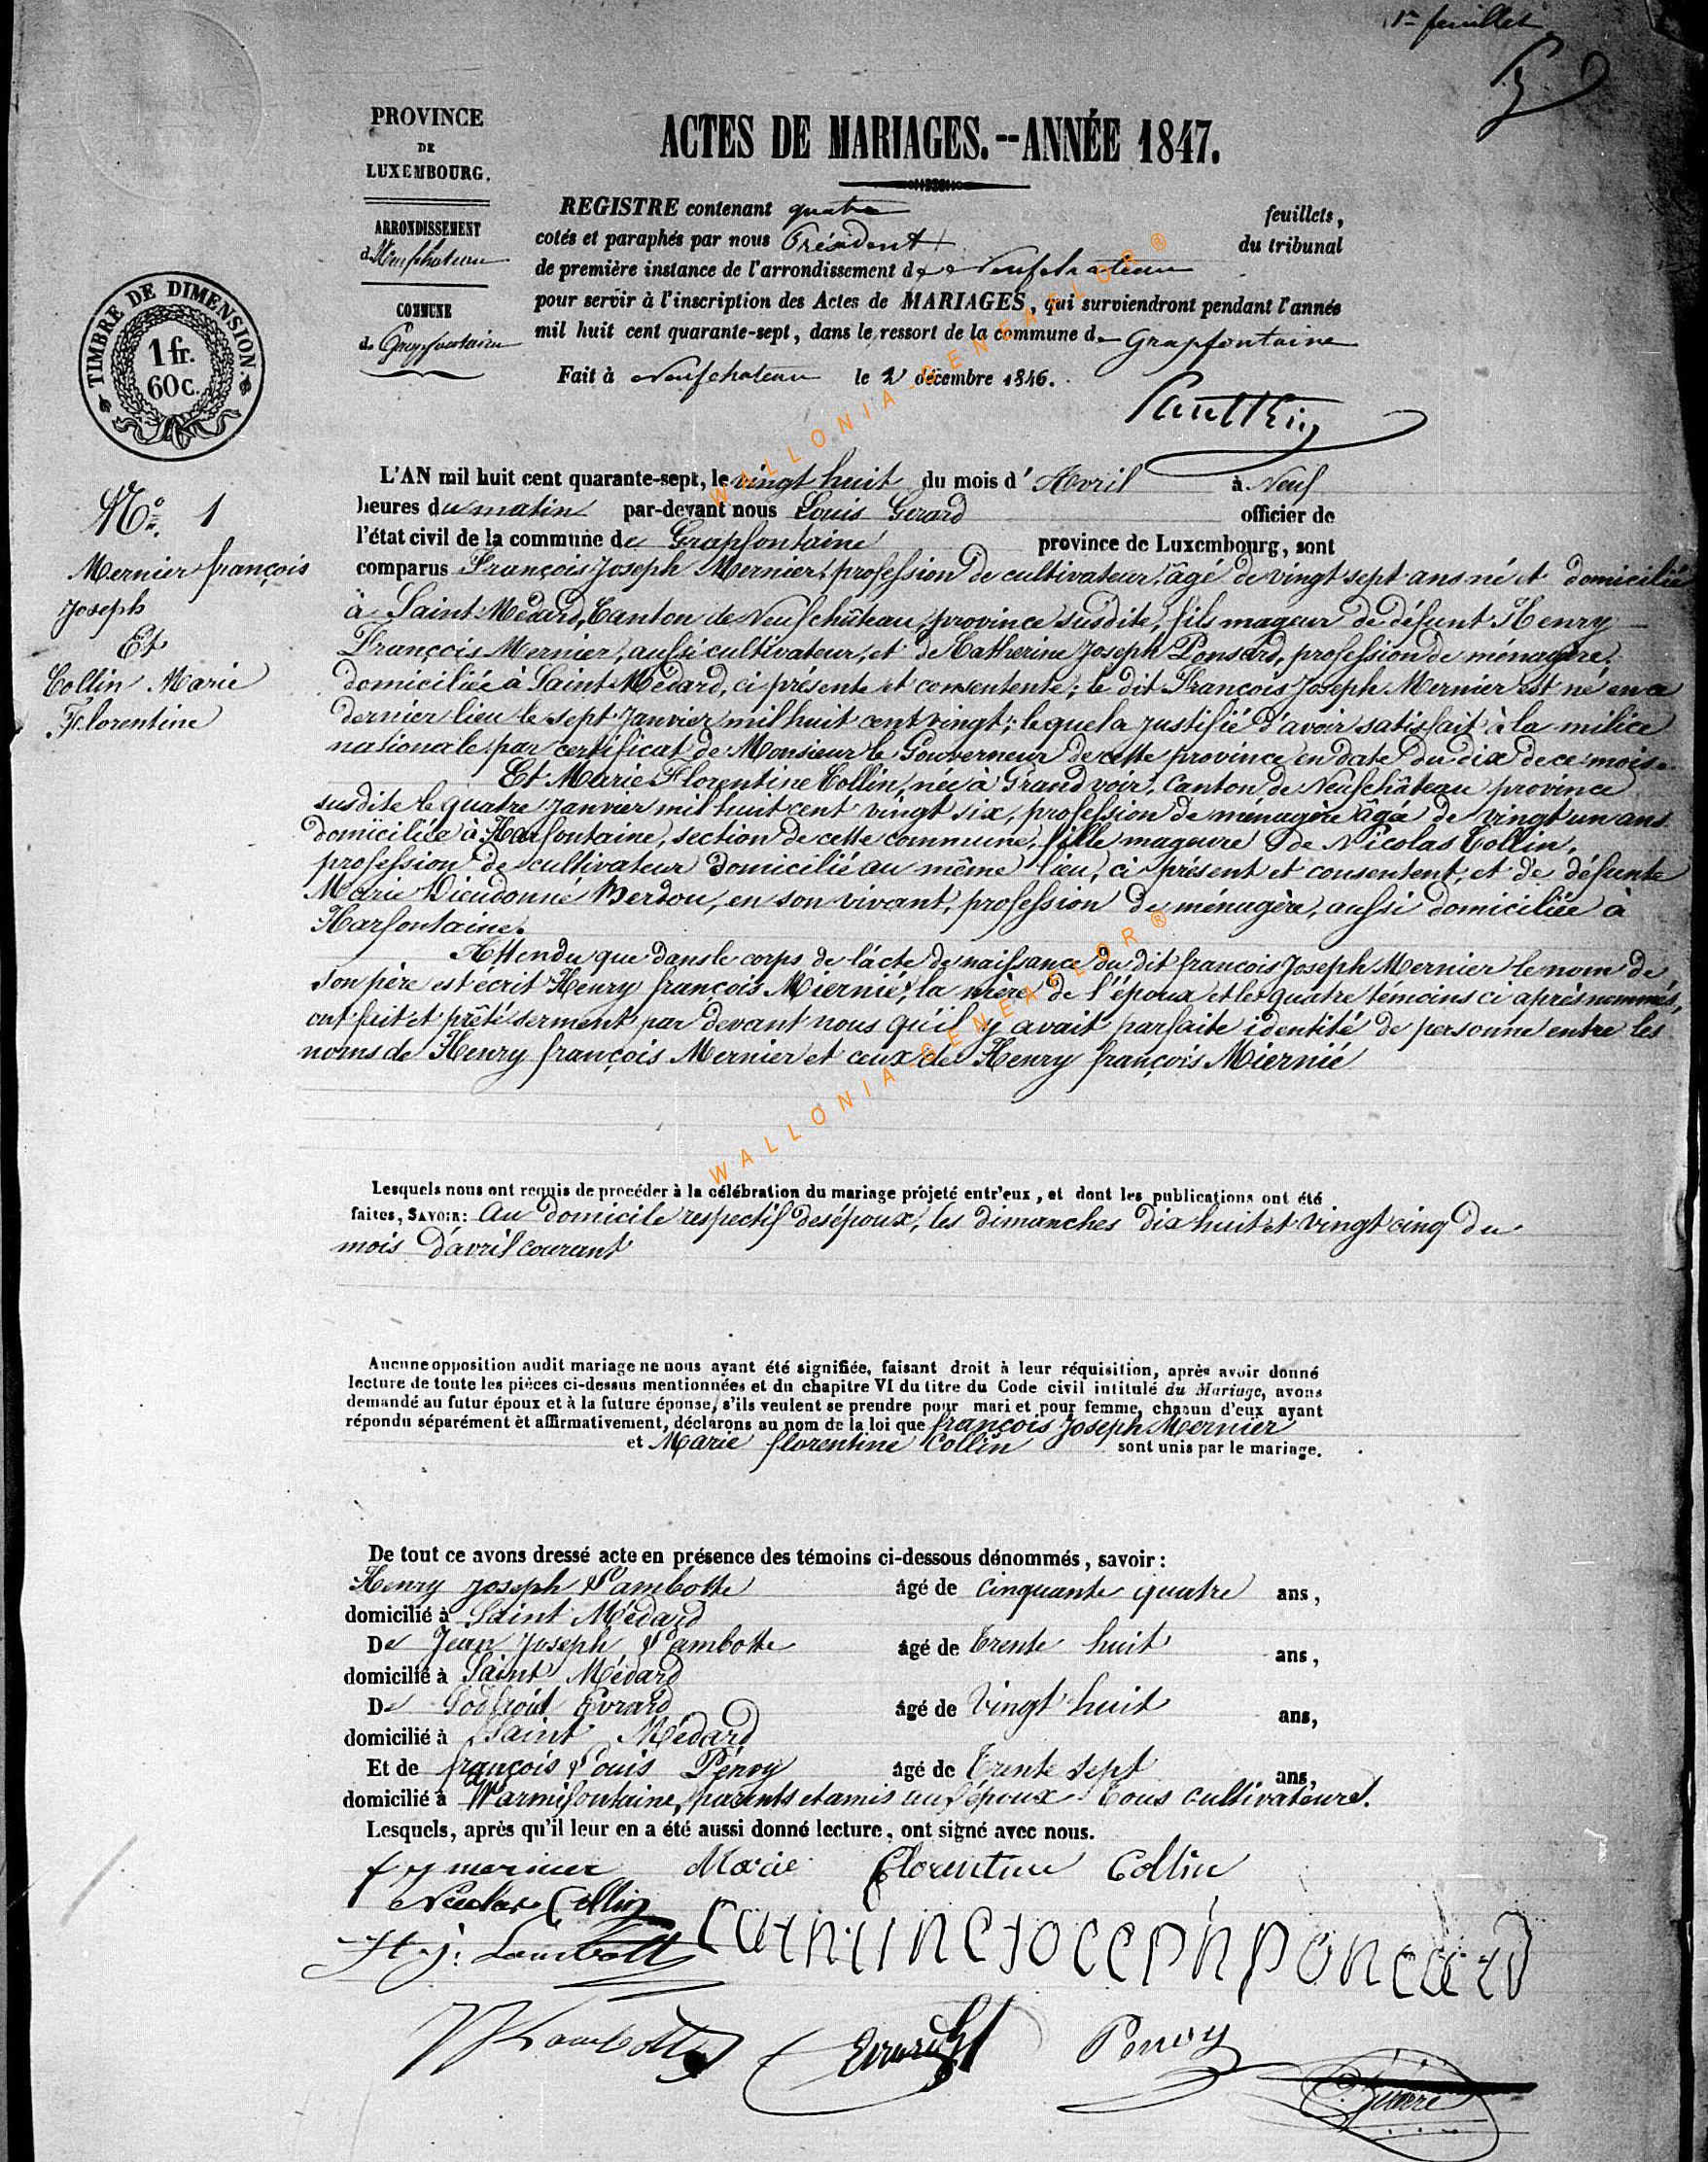 1er feuillet
PROVINCE
DE
LUXEMBOURG.
ARRONDISSEMENT
de Neufchateau
COMMUNE
de Grapfontaine
TIMBRE DE DIMENSION.
1 fr.
60 c.
ACTES DE MARIAGES. -- ANNÉE 1847.
REGISTRE contenant quatre feuillets,
cotés et paraphés par nous Président du tribunal
de première instance de l'arrondissement de Neufchateau
pour servir à l'inscription des Actes de MARIAGES, qui surviendront pendant l'année
mil huit cent quarante-sept, dans le ressort de la commune de Grapfontaine
Fait à Neufchateau le 2 décembre 1846.
No. 1
Mernier françois
Joseph
Et
Collin Marie
Florentine
L'AN mil huit cent quarante-sept, le vingt huit du mois d'Avril à Neuf
heures du matin par-devant nous Louis Gerard officier de
l'état civil de la commune de Grapfontaine province de Luxembourg, sont
comparus François Joseph Mernier, profession de cultivateur, âgé de vingt sept ans né et domicilié
à Saint Médard, Canton de Neufchâteau, province susdite, fils mageur de défunt Henry
François Mernier, aussi cultivateur, et de Catherine Joseph Ponsard, profession de ménagère,
domiciliée à Saint Médard, ci présente et consentente; le dit François Joseph Mernier est né en ce
dernier lieu le sept Janvier mil huit cent vingt; lequel a justifié d'avoir satisfait à la milice
nationale par certificat de Monsieur le Gouverneur de cette province en date du dix de ce mois.
Et Marie Florentine Collin, née à Grandvoir, Canton de Neufchâteau province
susdite le quatre Janvier mil huit cent vingt six, profession de ménagère âgée de vingt un ans
domiciliée à Harfontaine, section de cette commune, fille mageure de Nicolas Collin,
profession de cultivateur domicilié au même lieu, ci présent et consentent, et de défunte
Marie Dieudonné Herdou, en son vivant, profession de ménagère, aussi domiciliée à
Harfontaine.
Attendu que dans le corps de l'acte de naissance du dit francois Joseph Mernier le nom de
son père est écrit Henry françois Miernié, la mère de l'époux et les quatre témoins ci après nommés,
ont fait et prêté serment par devant nous qu'il y avait parfaite identité de personne entre les
noms de Henry françois Mernier et ceux de Henry françois Miernié
Lesquels nous ont requis de procéder à la célébration du mariage projeté entr'eux, et dont les publications ont été
faites, SAVOIR: Au domicile respectif des époux, les dimanches dix huit et vingt cinq du
mois d'avril courant
Aucune opposition audit mariage ne nous ayant été signifiée, faisant droit à leur réquisition, après avoir donné
lecture de toute les pièces ci-dessus mentionnées et du chapitre VI du titre du Code civil intitulé du Mariage, avons
demandé au futur époux et à la future épouse, s'ils veulent se prendre pour mari et pour femme, chacun d'eux ayant
répondu séparément et affirmativement, déclarons au nom de la loi que françois Joseph Mernier
et Marie florentine Collin sont unis par le mariage.
De tout ce avons dressé acte en présence des témoins ci-dessous dénommés, savoir:
Henry Joseph Lambotte âgé de Cinquante quatre ans,
domicilié à Saint Médard
De Jean Joseph Lambotte âgé de trente huit ans,
domicilié à Saint Médard
De Godfroid Evrard âgé de Vingt huit ans,
domicilié à Saint Médard
Et de françois Louis Pénoy âgé de trente sept ans,
domicilié à Warmifontaine, parents et amis aux époux Tous cultivateurs.
Lesquels, après qu'il leur en a été aussi donné lecture, ont signé avec nous.
f j mernier Marie Florentine Collin
Nicolas Collin
H. j. Lambotte catrinne joceph poncard
JJ Lambotte Evrard Penoy Gerard
WALLONIA-GENEAFLOR ®
WALLONIA-GENEAFLOR ®